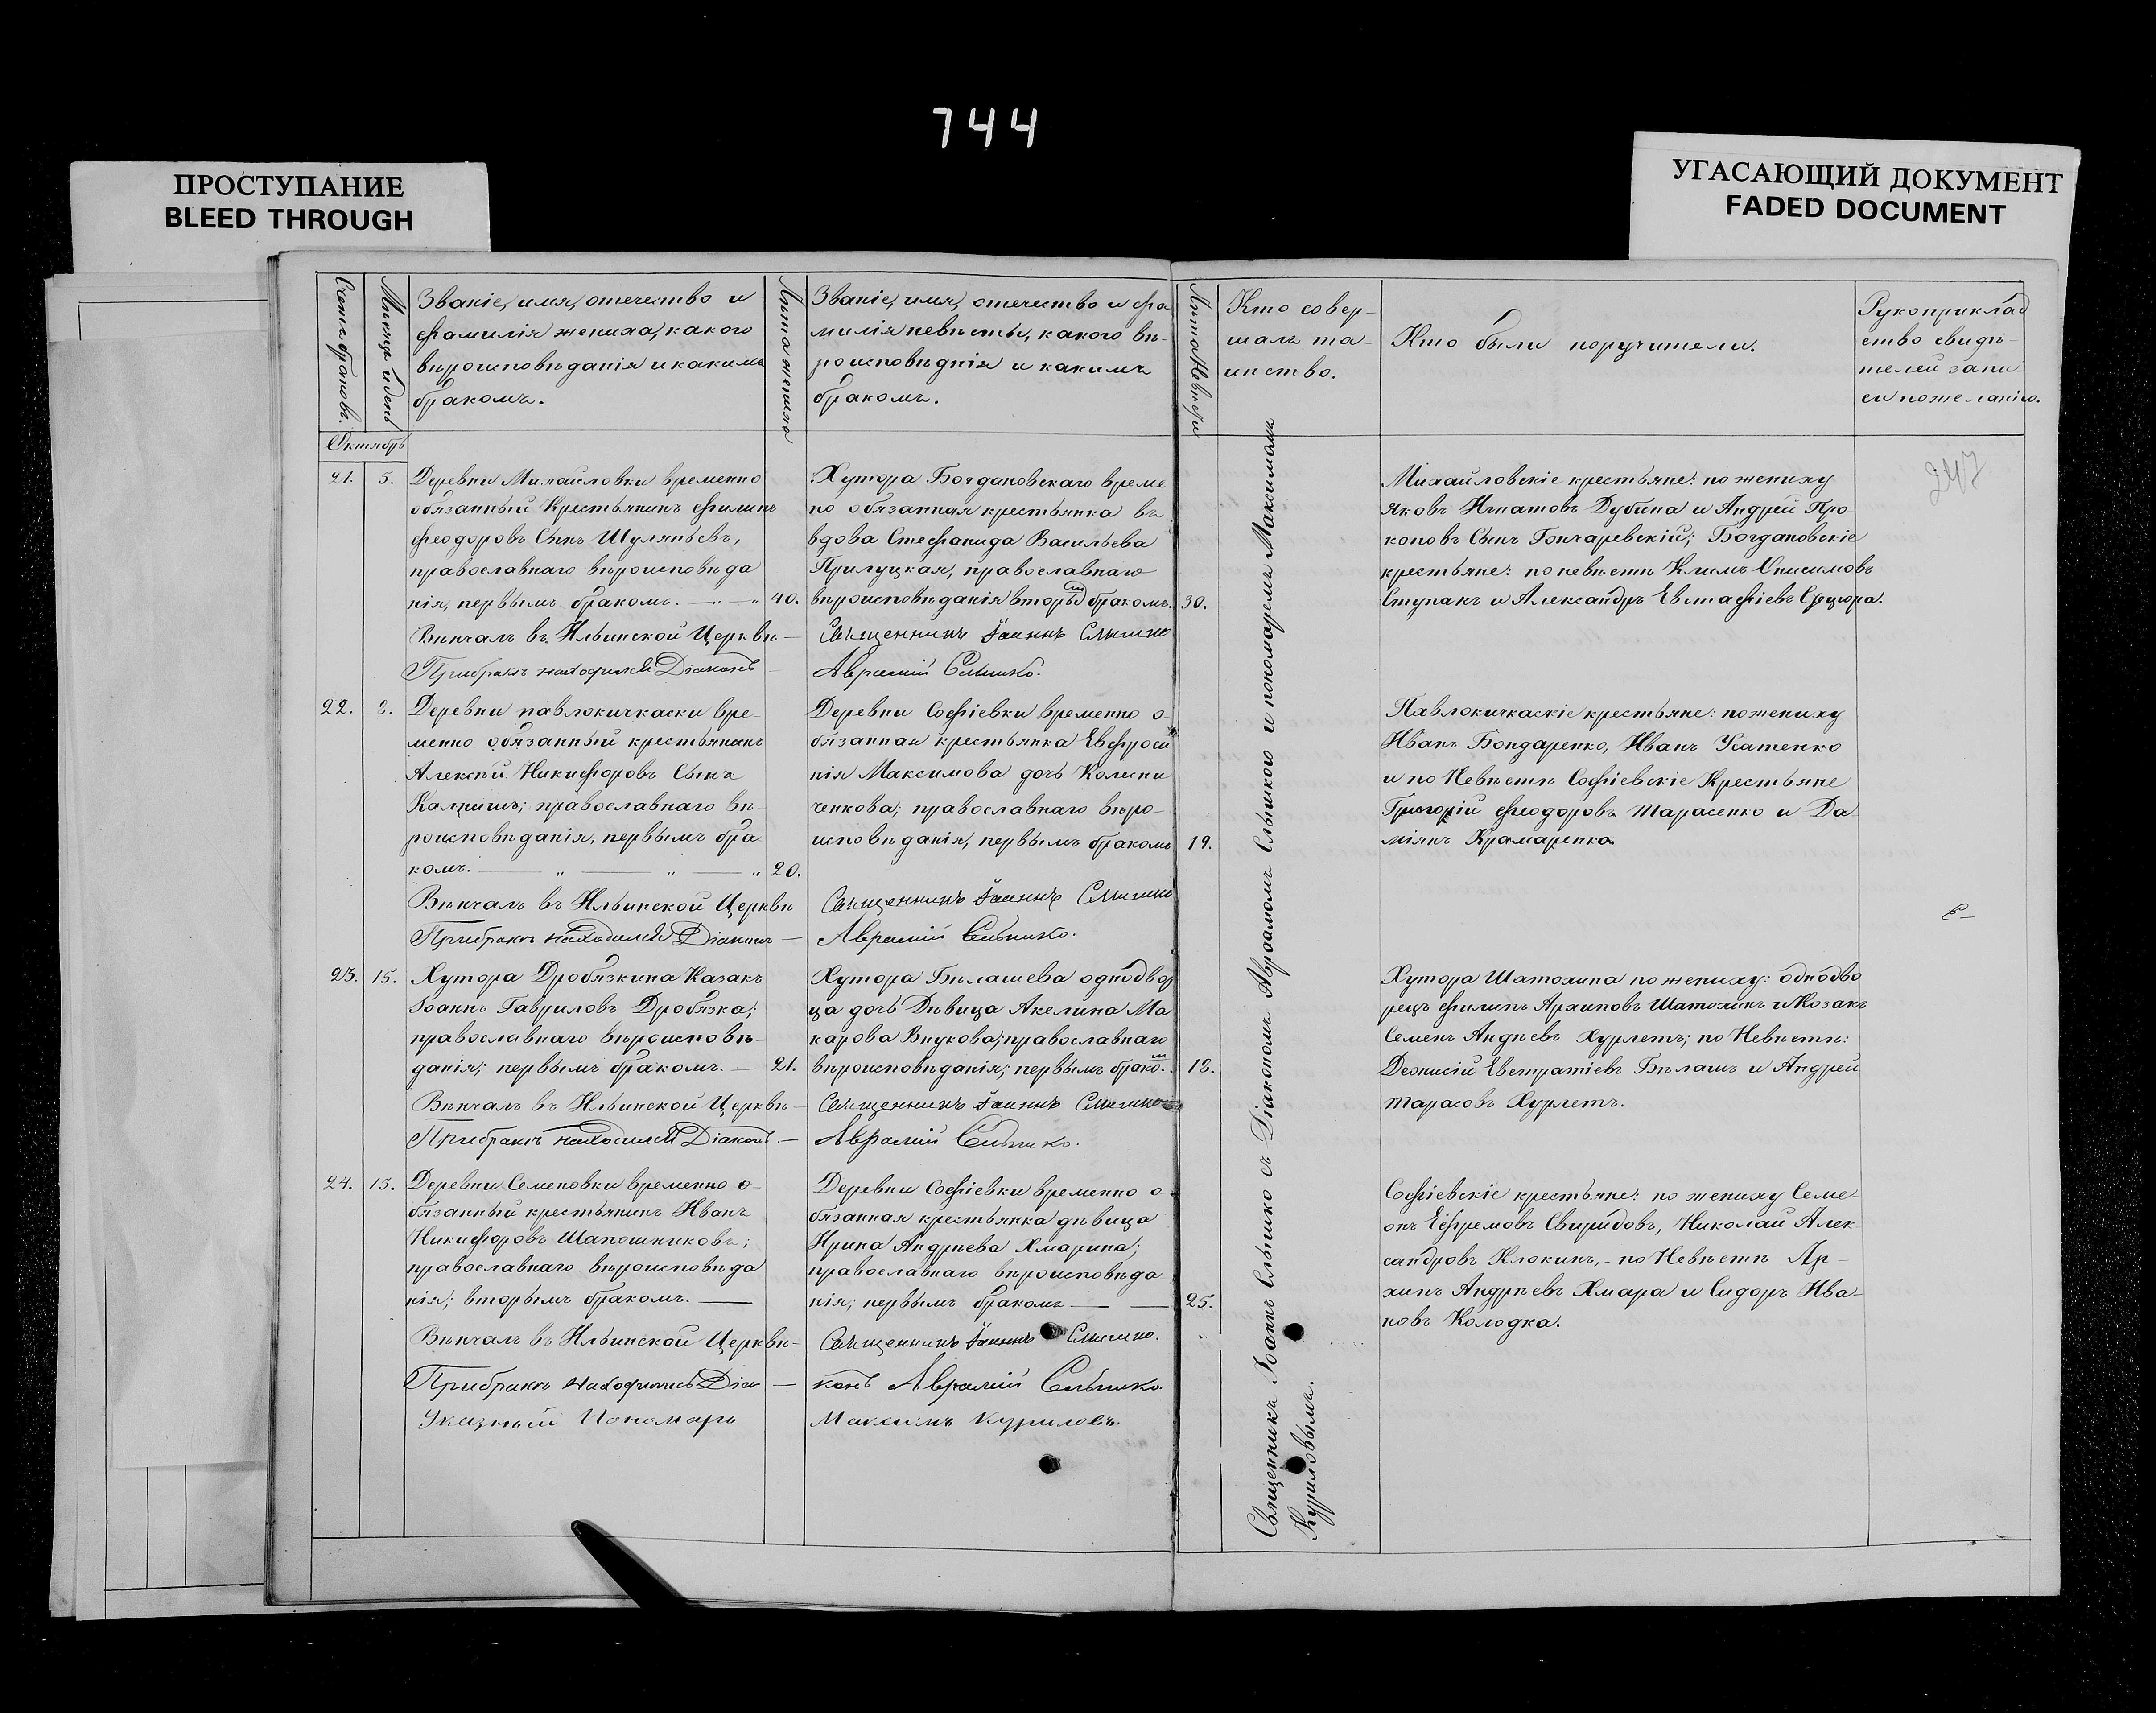 744
ПРОСТУПАНИЕ
BLEED THROUGH
УГАСАЮЩИЙ ДОКУМЕНТ
FADED DOCUMENT
Счетъ браковъ.
Мѣсяцъ и день
Званіе, имя, отечество и
фамилія жениха, какого
вѣроисповѣданія и какимъ
бракомъ.
Лѣта жениха
Званіе, имя, отечество и фа
милія невѣсты, какого вѣ-
роисповѣднія и какимъ
бракомъ.
Лѣта Невѣсты
Кто совер-
шалъ та-
инство.
Кто были поручители.
Рукоприклад
ство свидѣ-
телей запи
си по желанію.
Октябрь
247
21. 5.
Деревни Михайловки временно
обязанный Крестьянинъ Филипъ
Феодоровъ Сынъ Шуляпьевъ,
православнаго вѣроисповѣда
нія, первымъ бракомъ. — „ — „ 40.
Вѣнчалъ въ Ильинской Церквѣ —
При бракѣ находился Діаконъ
Хутора Богдановскаго време
но обязанная крестьянка въ
вдова Стефанида Васильева
Прилуцкая, православнаго
вѣроисповѣданія вторы бракомъ. 30.
Священникъ Іоаннъ Слѣпико
Аврамій Слѣпико.
Михайловскіе крестьяне: по жениху
Яковъ Игнатовъ Дубина и Андрей Про
коповъ Сынъ Гончаревскій; Богдановскіе
крестьяне: по невѣстѣ Климъ Онисимовъ
Ступакъ и Александръ Евстафіевъ
22. 8.
Деревни павлокичкаски вре-
менно обязанный крестьянинъ
Алексѣй Никифоровъ Сынъ
православнаго вѣ-
роисповѣданія, первымъ бра
комъ. — „ — „ — „ 20.
Вѣнчалъ въ Ильинской Церквѣ
При бракѣ находился Діаконъ —
Деревни Софіевки временно о-
бязанная крестьянка Евфроси
нія Максимова дочь Колисни
ченкова; православнаго вѣро-
исповѣданія, первымъ бракомъ 19.
Священникъ Іоаннъ Слѣпико
Аврамій Слѣпико.
Павлокичкаскіе крестьяне: по жениху
Иванъ Бондаренко, Иванъ Усатенко
и по Невѣстѣ Софіевскіе Крестьяне
Григорій Феодоровъ Тарасенко и Да
міянъ Крамаренко
23. 15.
Хутора Дробязкина Казакъ
Іоаннъ Гавриловъ Дробязка;
православнаго вѣроисповѣ-
данія; первымъ бракомъ. — 21.
Вѣнчалъ въ Ильинской Церквѣ —
При бракѣ находился Діаконъ. —
Хутора Бѣлашева однодвор
ца дочь Дѣвица Акелина Ма
карова Внукова; православнаго
вѣроисповѣданія; первымъ брако. 18.
Священникъ Іоаннъ Слѣпико
Аврамій Слѣпико.
Хутора Шатохина по жениху: однодво
рецъ Филипъ Архиповъ Шатохинъ и Козакъ
Семенъ Андѣевъ Хурлетъ; по Невѣстѣ:
Деонисій Евстратіевъ Бѣлашъ и Андрей
Тарасовъ Хурлетъ.
24. 15.
Деревни Семеновки временно о-
бязанный крестьянинъ Иванъ
Никифоровъ Шапошниковъ;
православнаго вѣроисповѣда
нія; вторымъ бракомъ. —
Вѣнчалъ въ Ильинской Церквѣ —
При бракѣ находились Діа —
Указный Пономарь
Деревни Софіевки временно о
бязанная крестьянка дѣвица
Ирина Андрѣева Хмарина;
православнаго вѣроисповѣда
нія; первымъ бракомъ — — 25.
Священникъ Іоаннъ Слѣпико.
конъ Аврамій Слѣпико
Максимъ Куриловъ.
Софіевскіе крестьяне: по жениху Семе-
онъ Ефремовъ Свиридовъ, Николай Алек-
сандровъ Клокинъ, - по Невѣстѣ Ар-
хипъ Андрѣевъ Хмара и Сидоръ Ива-
новъ Колодка.
Священникъ Іоаннъ Слѣпико съ Діакономъ Авраамомъ Слѣпикою и пономаремъ Максимомъ
Куриловымъ.